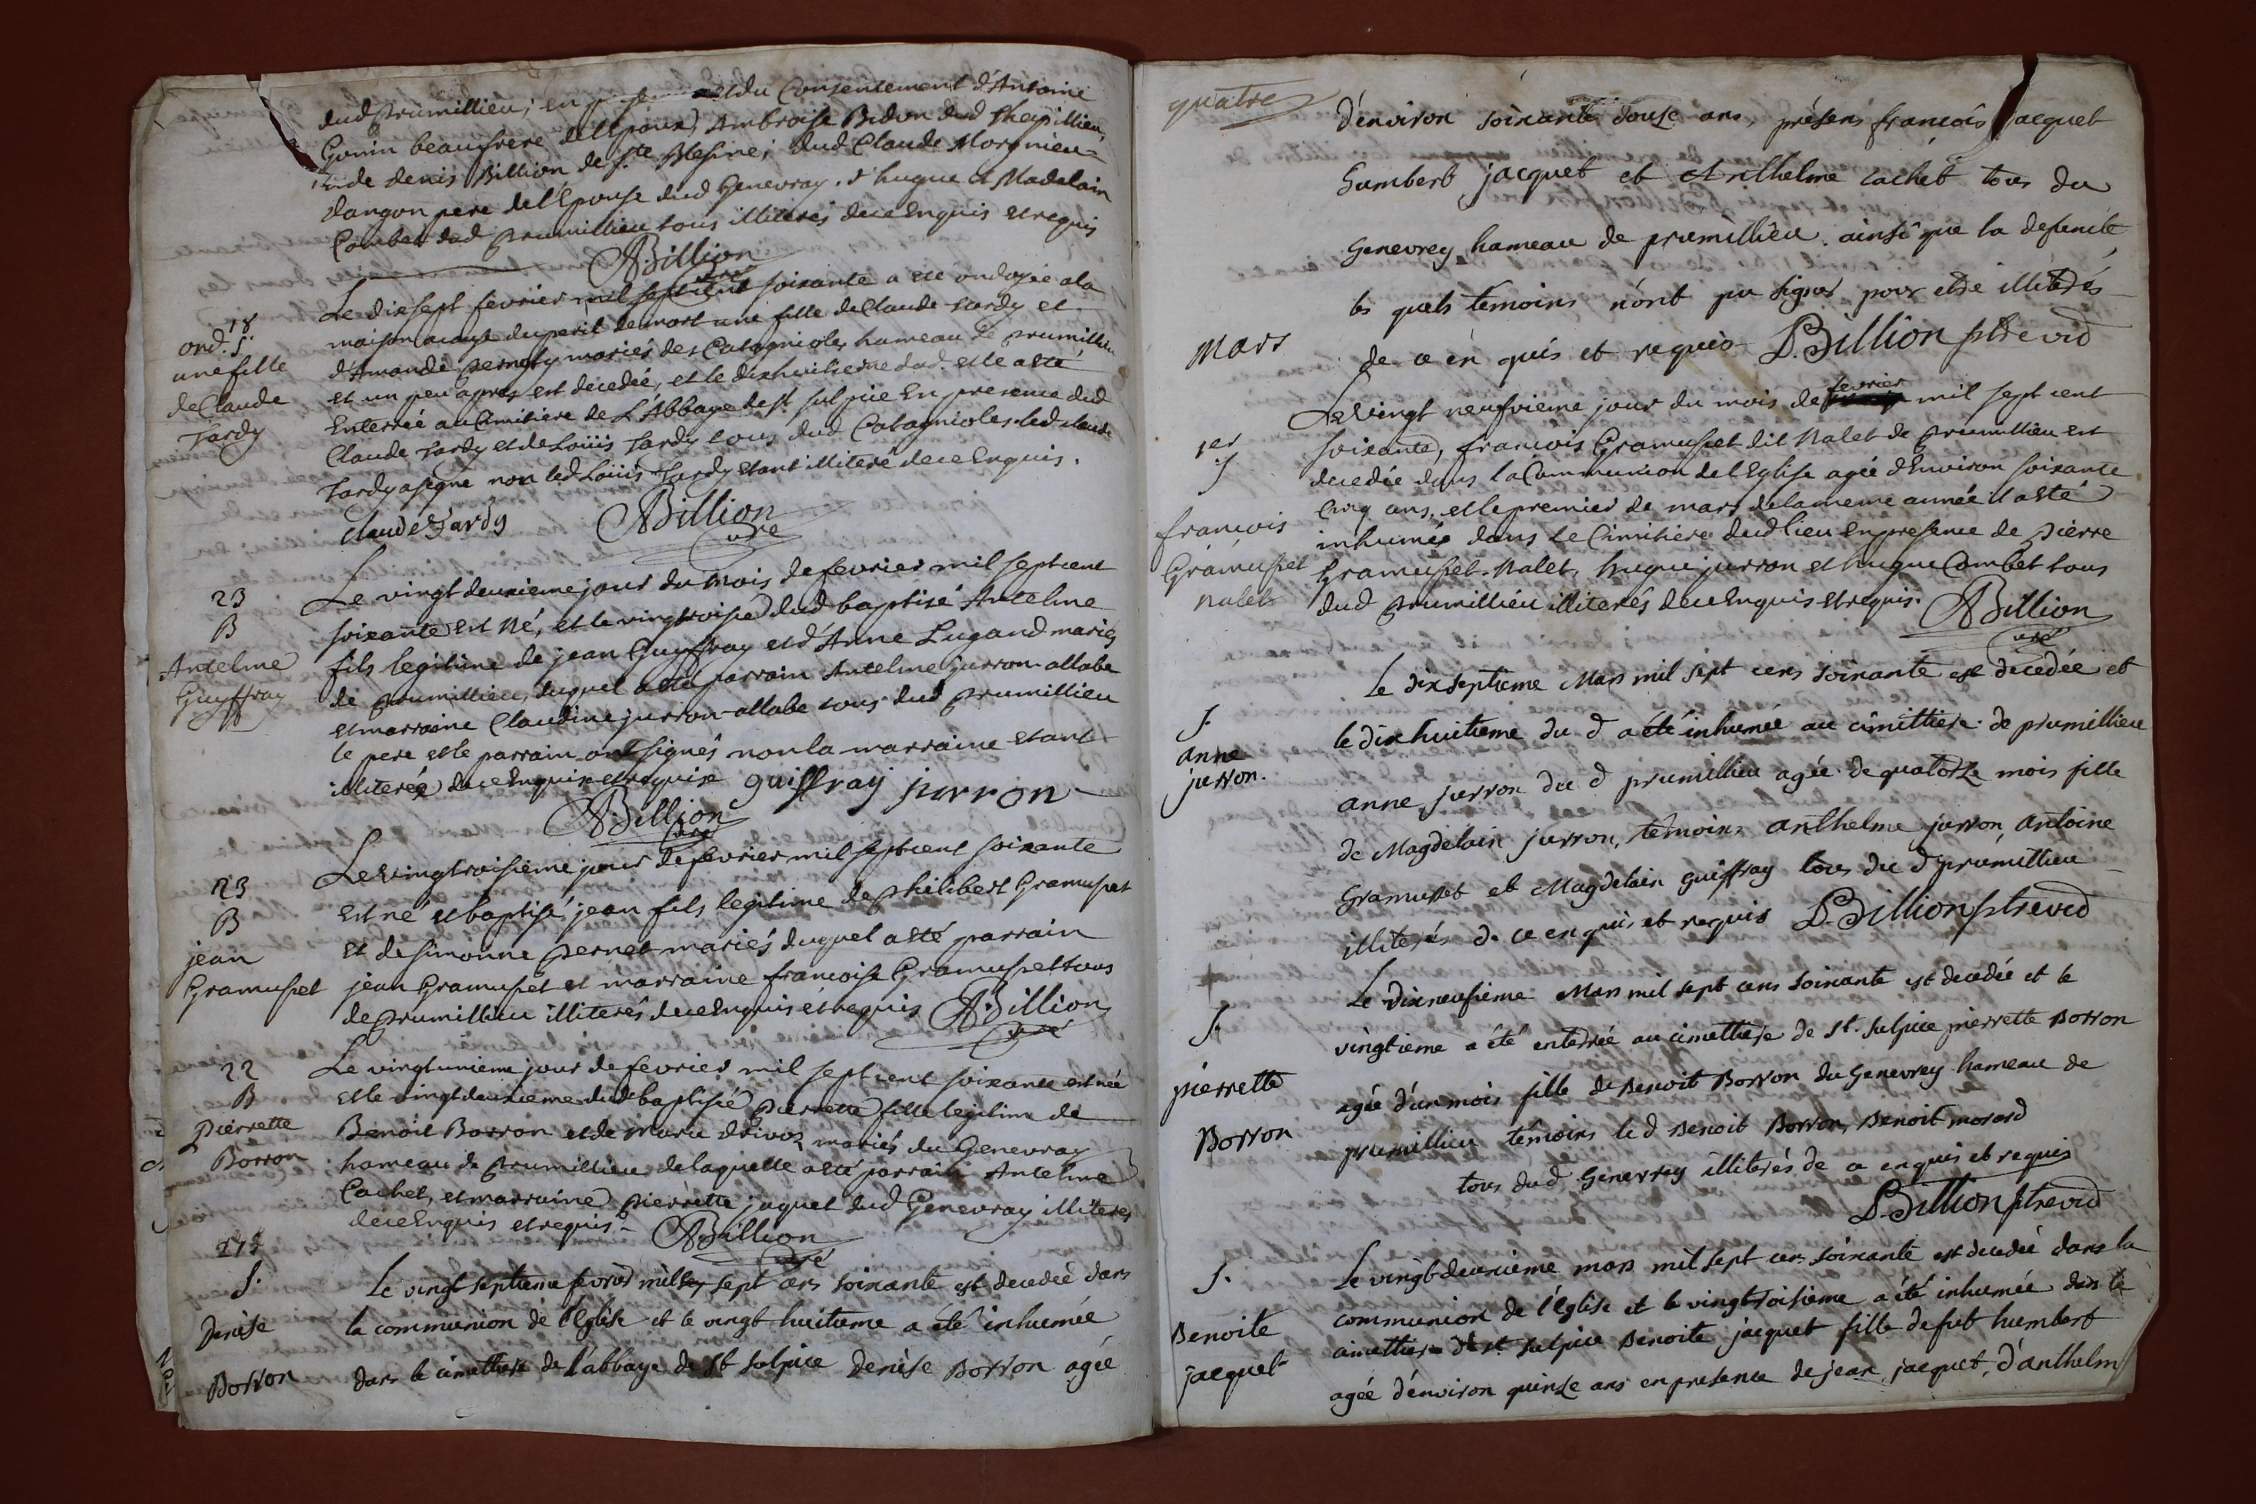 dud prumillieu, en et du Consentement d'Antoine
Gonin beaufrere de l'Epoux, Ambroise Bidon dud
de denis Billion de Ste Blesine; dud Claude Morgnieu=
dangon pere de l'Epouse dud Genevray. d'hugue et Madelain
Combet dud prumillieu tous illiterés de ce Enquis et requis
A. Billion
curé
18
ond. S.
une fille
de Claude
Tardy
Le dixsept fevrier mil septcent soixante a eté ondoyée a la
maison a cause du peril de mort une fille de Claude tardy et
d'Amande pernety mariés des Catagnioles hameau de prumillieu
et un peu apres est decedée, et le dixhuitieme dud. elle a eté
Enterrée au Cimitiere de L'Abbaye de st sulpice En presence dud
Claude Tardy et de Loüis Tardy tous dud Catagnioles led claude
Tardy a signé non led Loüis Tardy Etant illiteré de ce Enquis.
claude Tardy
A Billion
curé
23
B
Antelme
Guyffray
Le vingt deuxieme jour du Mois de fevrier mil septcent
soixante est Né, et le vingtroisie dud baptisé Antelme
fils legitime de jean Guyffray et d'Anne Lugand mariés
de prumillieu, duquel a eté parrain Antelme jurron-allabe
et marraine Claudine jurron-allabe tous dud prumillieu
le pere et le parrain ont signés non la marraine Etant
illiterée de ce Enquise et requise guiffray jurron
A. Billion
curé
23
B
jean
Gramuset
Le vingtroisieme jour de fevrier mil septcent soixante
est né et baptisé jean fils legitime de philibert Gramuset
et de simonne pernet mariés duquel a eté parrain
jean Gramuset et marraine francoise Gramuset tous
de prumillieu illiterés de ce Enquis et requis A. Billion
curé
22
B
Pierrette
Borron
Le vingtunieme jour de fevrier mil septcent soixante est née
et le vingt deuxieme dud baptisée pierrette fille legitime de
Benoit Borron et de Marie drivoz mariés du Genevray
hameau de prumillieu, de laquelle a eté parrain Antelme
Cachet, et marraine pierrette jaquet dud Genevray illiteres
de ce Enquis et requis. A Billion
curé
S.
Denise
Borron
Le vingt septieme fevrier mil sept cens soixante est decedée dans
la communion de l'Eglise et le vingt huitieme a été inhumée
dans le cimettiere de l'abbaye de St Sulpice Denise Borron agée
quatre
d'environ soixante douze ans, présens françois jacquet
humbert jacquet et Anthelme cachet tous du
Genevrey hameau de prumillieu. ainsi que la defunte
les quels temoins n'ont pu signer pour etre illiterés
de ce en quis et requis D. Billion ptre vic
Mars
1er
S
francois
Gramuset
nalet
Le vingt neufvieme jour du mois de fevrier mil sept cent
soixante, francois Gramuset dit Nalet de prumillieu est
decedée dans la Communion de l'Eglise agée d'Environ soixante
Cinq ans, et le premier de mars de la meme année il a eté
inhumée dans le Cimitiere dud lieu en presence de Pierre
Gramuset-Nalet, hugue jurron et hugue Combet tous
dud prumillieu illiterés de ce Enquis et requis. A Billion
curé
S.
anne
jurron.
Le dix septieme Mars mil sept cens soixante est decedée et
le dix huitieme du d a été inhumée au cimittiere de prumillieu
anne jurron du d prumillieu agée de quatorze mois fille
de Magdelain jurron, témoins anthelme jurron, antoine
Gramuset et Magdelain guiffray tous du d prumillieu
illiterés de ce en quis et requis D. Billion ptre vic
S.
pierrette
Borron
Le dixneufieme Mars mil sept cens soixante est decedée et le
vingtieme a été enterrée au cimettiere de St. Sulpice pierrette Borron
agée d'un mois fille de Benoit Borron du Genevrey hameau de
prumillieu témoins le d Benoit Borron, Benoit morard
tous du d Genevrey illiterés de ce enquis et requis
D. Billion ptre vic
S.
Benoite
jacquet
Le vingt deuxieme mars mil sept cens soixante est decedée dans la
communion de l'église et le vingt troisieme a été inhumée dans le
cimettiere de st. sulpice Benoite jacquet fille de fut humbert
agée d'environ quinze ans en presence de jean jacquet, d'anthelm